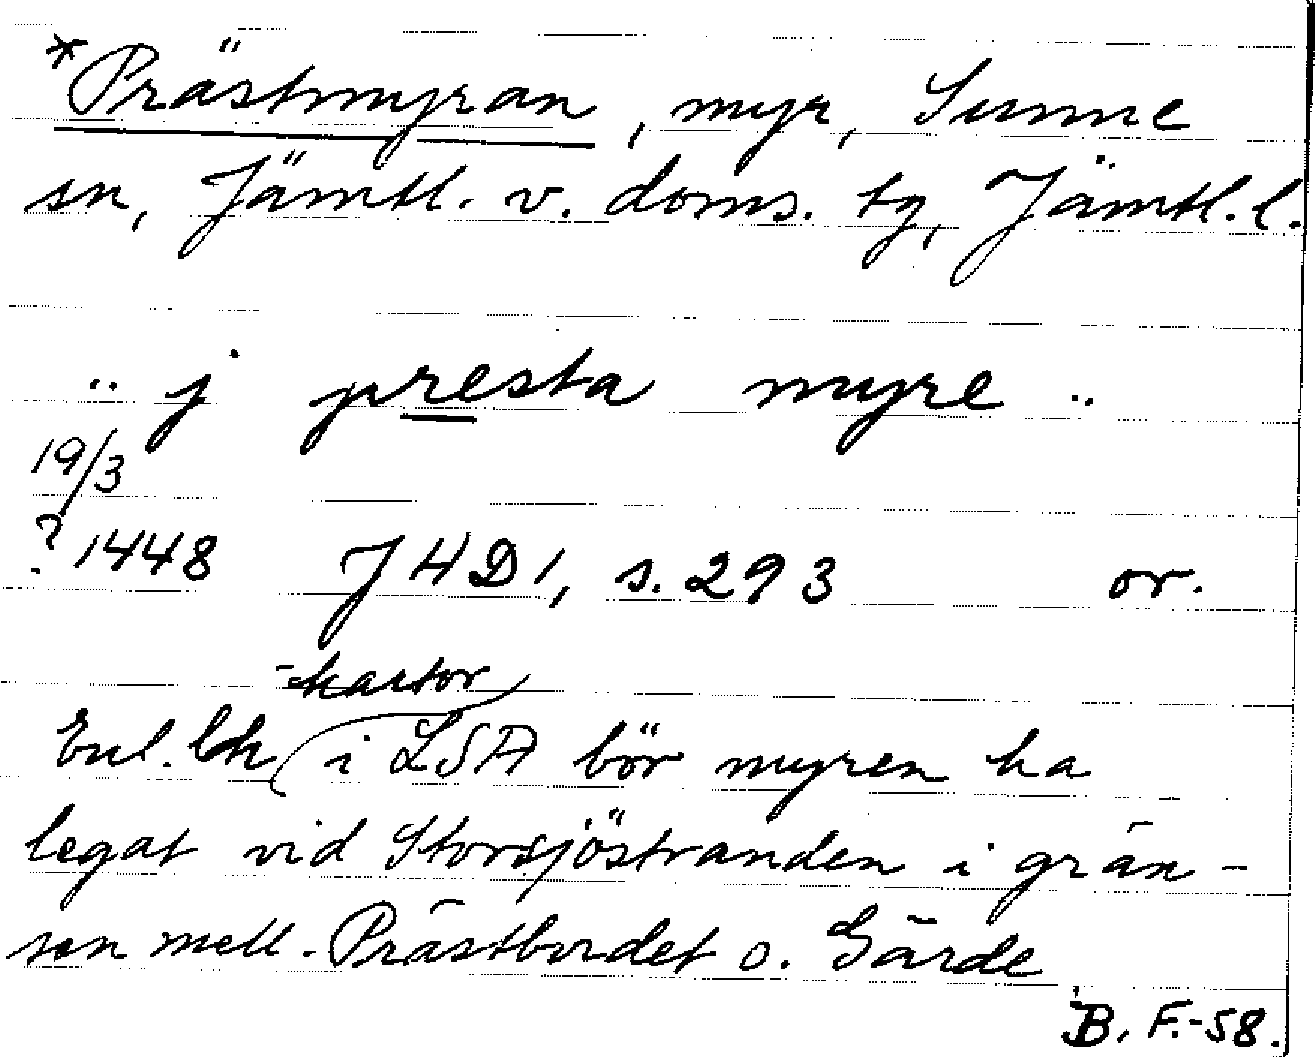 *Prästmyran, myr, Sunne
sn, Jämtl. v. doms. tg, Jämtl. l.
.. j presta myre ..
19/3
? 1448 JHD 1, s. 293 or.
-kartor
Enl. lk i LSA bör myren ha
legat vid Storsjöstranden i grän-
sen mell. Prästbordet o. Gärde
B. F.-58.